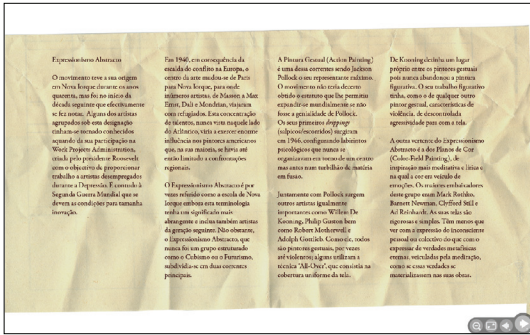 Expressionismo Abstracto
O movimento teve a sua origem
em Nova Iorque durante os anos
quarenta, mas foi no início da
década seguinte que efectivamente
se fez notar. Alguns dos artistas
agrupados sob esta designação
tinham-se tornado conhecidos
aquando da sua participação na
Work Projects Administration,
criada pelo presidente Roosevelt
com o objectivo de proporcionar
trabalho a artistas desempregados
durante a Depressão. É contudo à
Segunda Guerra Mundial que se
devem as condições para tamanha
inovação.
Em 1940, em consequência da
escalada do conflito na Europa, o
centro da arte mudou-se de Paris
para Nova Iorque, para onde
inúmeros artistas, de Masson a Max
Ernst, Dali e Mondrian, viajaram
como refugiados. Esta concentração
de talentos, nunca vista naquele lado
do Atlântico, viria a exercer enorme
influência nos pintores americanos
que, na sua maioria, se havia até
então limitado a confrontações
regionais.
O Expressionismo Abstracto é por
vezes referido como a escola de Nova
Iorque embora esta terminologia
tenha um significado mais
abrangente e inclua também artistas
da geração seguinte. Não obstante,
o Expressionismo Abstracto, que
nunca foi um grupo estruturado
como o Cubismo ou o Futurismo,
subdividia-se em duas correntes
principais.
A Pintura Gestual (Action Painting)
é uma dessa correntes sendo Jackson
Pollock o seu representante máximo.
O movimento não teria decerto
obtido o estatuto que lhe permitiu
expandir-se mundialmente se não
fosse a genialidade de Pollock.
Os seus primeiros drippings
(salpicos/escorridos) surgiram
em 1946, configurando labirintos
psicológicos que nunca se
organizavam em torno de um centro
mas antes num turbilhão de matéria
em fusão.
Juntamente com Pollock surgem
outros artistas igualmente
importantes como Willem De
Kooning, Philip Guston bem
como Robert Motherwell e
Adolph Gottlieb. Como ele, todos
são pintores gestuais, por vezes
até violentos; alguns utilizam a
técnica 'All-Over', que consistia na
cobertura uniforme da tela.
De Kooning detinha um lugar
próprio entre os pintores gestuais
pois nunca abandonou a pintura
figurativa. O seu trabalho figurativo
tinha, como o de qualquer outro
pintor gestual, características de
violência, de descontrolada
agressividade para com a tela.
A outra vertente do Expressionismo
Abstracto é a dos Pintores de Cor
(Color-Field Painting), de
inspiração mais meditativa e lírica e
na qual a cor era veículo de
emoções. Os maiores embaixadores
deste grupo eram Mark Rothko,
Barnett Newman, Clyfford Still e
Ad Reinhardt. As suas telas são
rigorosas e simples. Têm menos que
ver com a expressão do inconsciente
pessoal ou colectivo do que com o
expressar de verdades metafísicas
eternas, veiculadas pela meditação,
como se essas verdades se
materializassem nas suas obras.